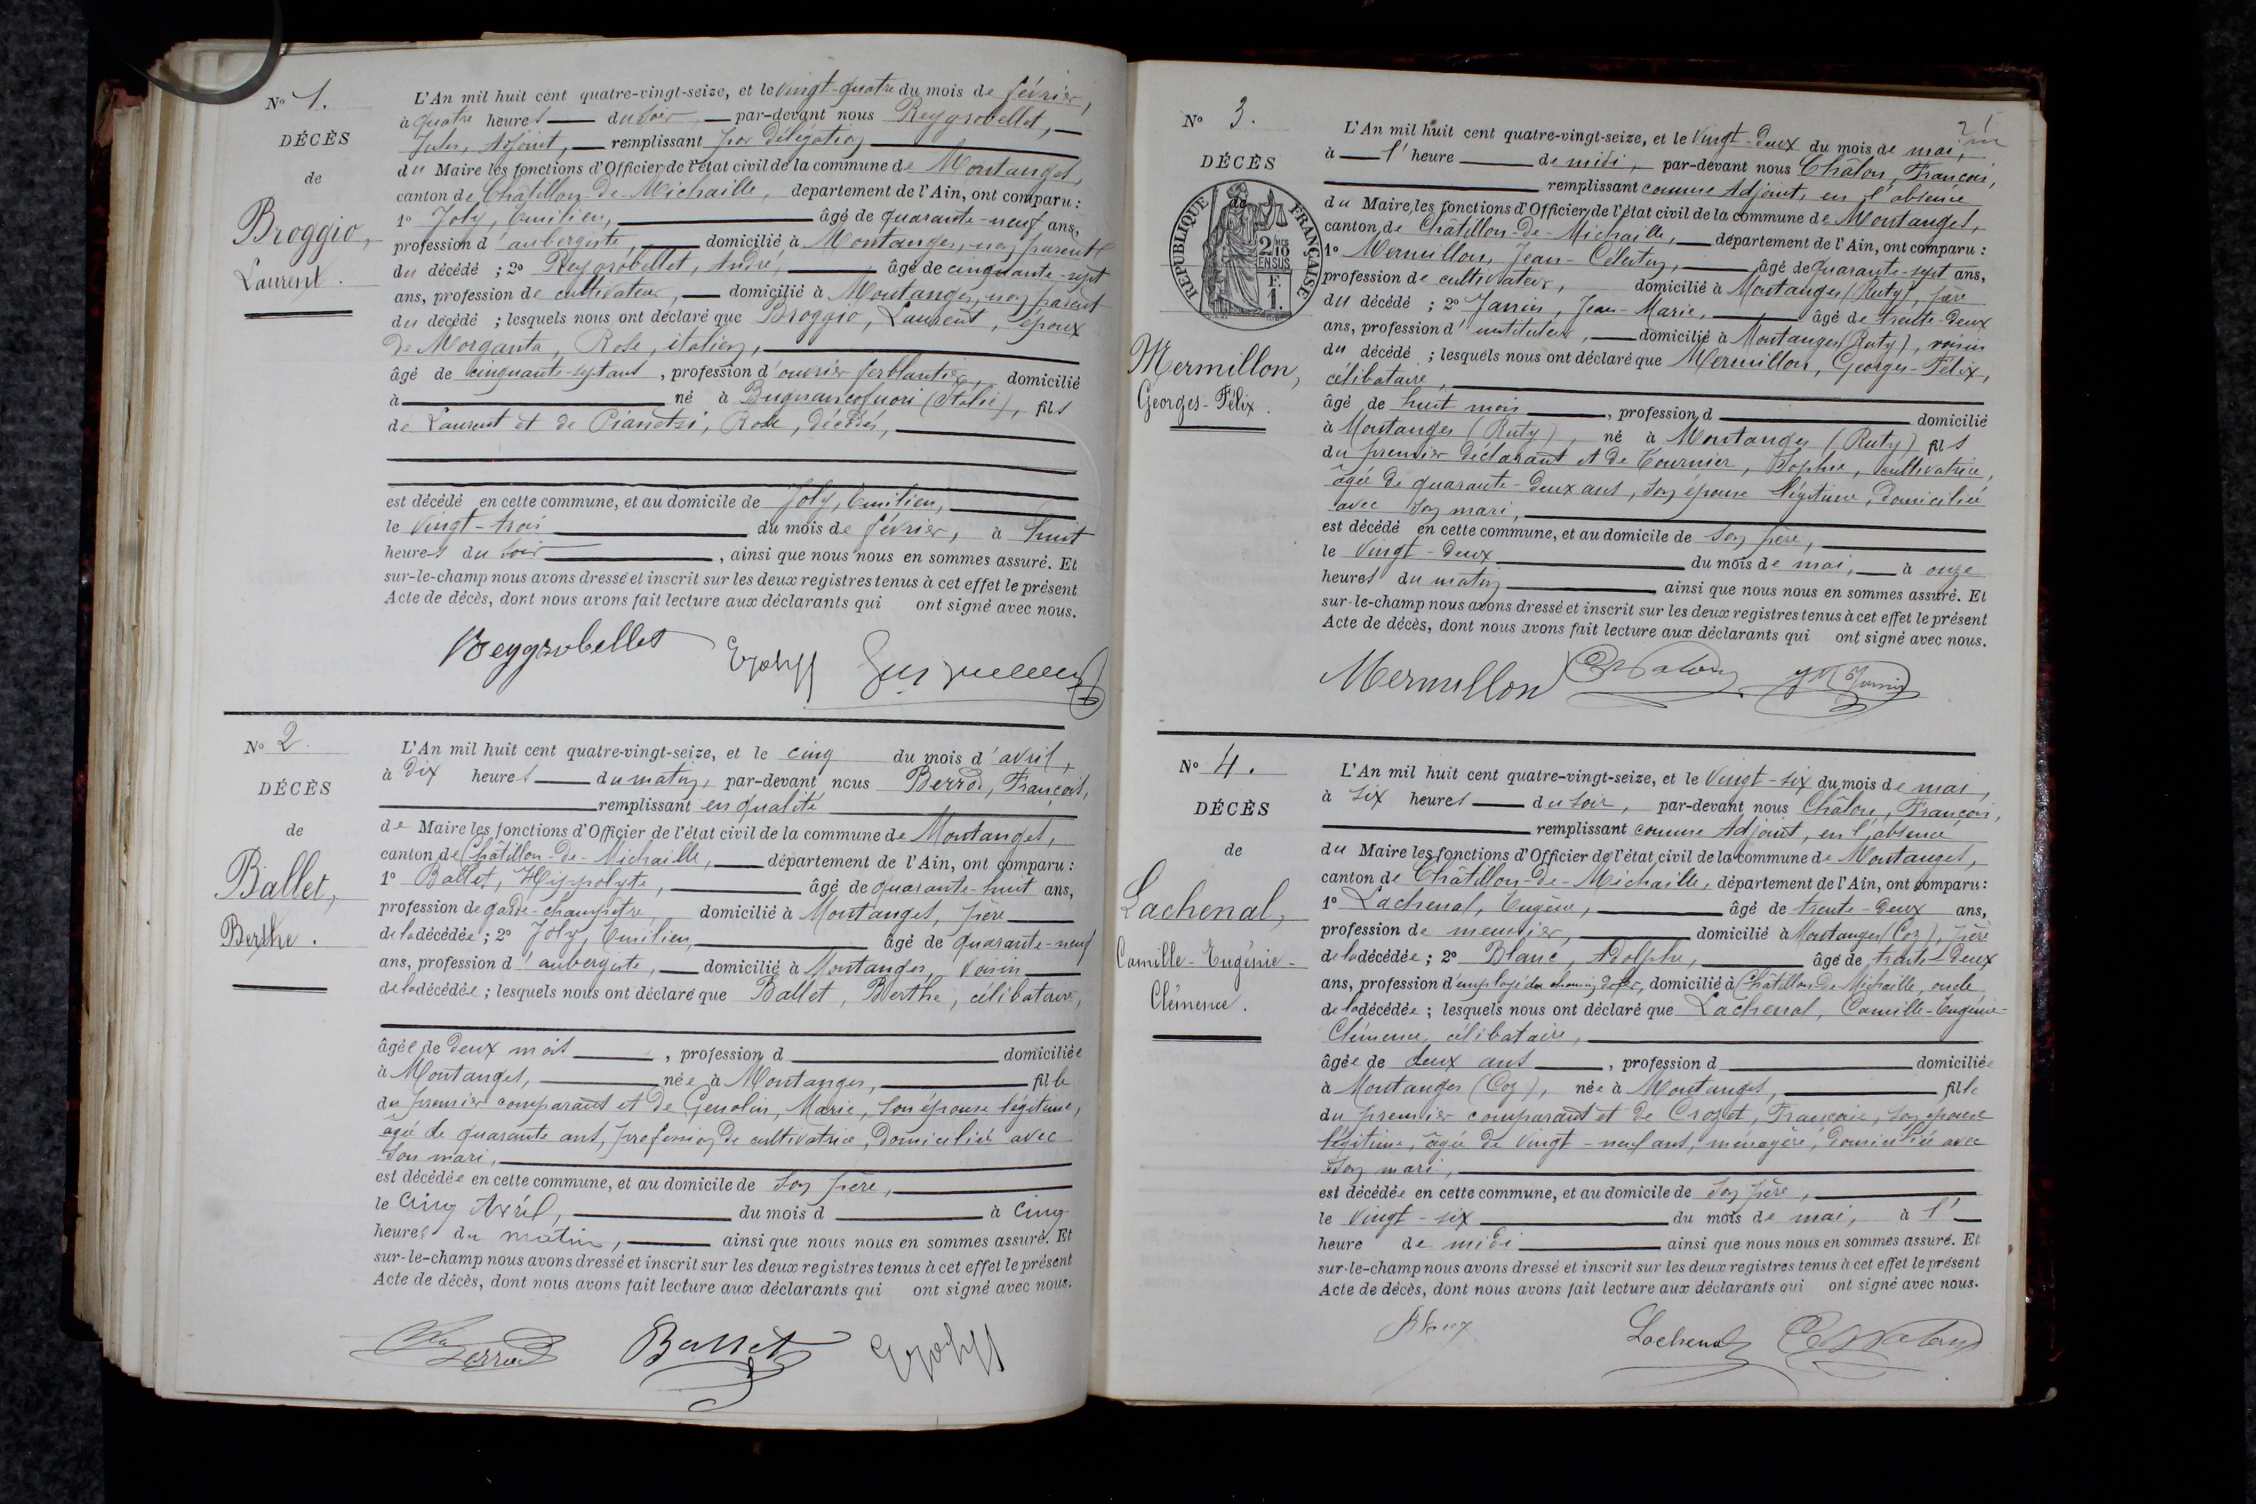 N° 1.
DÉCÈS
de
Broggio,
Laurent.
L'An mil huit cent quatre-vingt-seize, et le vingt-quatre du mois de février,
à quatre heures du soir par-devant nous Reygrobellet,
Jules, Adjoint, remplissant par délégation
du Maire les fonctions d'Officier de l'état civil de la commune de Montanges,
canton de Châtillon-de-Michaille, département de l'Ain, ont comparu :
1° Joly, Emilien, âgé de quarante-neuf ans,
profession d'aubergiste, domicilié à Montanges, non parent
du décédé ; 2° Reygrobellet, André, âgé de cinquante-sept
ans, profession de cultivateur, domicilié à Montanges, non parent
du décédé ; lesquels nous ont déclaré que Broggio, Laurent, époux
de Morganta, Rose, italien,
âgé de cinquante-sept ans, profession d'ouvrier ferblantier, domicilié
à né à (Italie), fils
de Laurent et de Rose, décédés,
est décédé en cette commune, et au domicile de Joly, Emilien,
le vingt-trois du mois de février, à huit
heures du soir, ainsi que nous nous en sommes assuré. Et
sur-le-champ nous avons dressé et inscrit sur les deux registres tenus à cet effet le présent
Acte de décès, dont nous avons fait lecture aux déclarants qui ont signé avec nous.
Reygrobellet EJoly
N° 2.
DÉCÈS
de
Ballet,
Berthe.
L'An mil huit cent quatre-vingt-seize, et le cinq du mois d'avril,
à dix heures du matin, par-devant nous Berrod, François,
remplissant en qualité
de Maire les fonctions d'Officier de l'état civil de la commune de Montanges,
canton de Châtillon-de-Michaille, département de l'Ain, ont comparu :
1° Ballet, Hippolyte, âgé de quarante-huit ans,
profession de garde-champêtre, domicilié à Montanges, père
de la décédée ; 2° Joly, Emilien, âgé de quarante-neuf
ans, profession d'aubergiste, domicilié à Montanges, voisin
de la décédée ; lesquels nous ont déclaré que Ballet, Berthe, célibataire,
âgée de deux mois, profession d domiciliée
à Montanges, née à Montanges, fille
du premier comparant et de Genolin, Marie, son épouse légitime,
âgée de quarante ans, profession de cultivatrice, domiciliée avec
son mari,
est décédée en cette commune, et au domicile de son père,
le cinq Avril, du mois d à cinq
heures du matin, ainsi que nous nous en sommes assuré. Et
sur-le-champ nous avons dressé et inscrit sur les deux registres tenus à cet effet le présent
Acte de décès, dont nous avons fait lecture aux déclarants qui ont signé avec nous.
Berrod Ballet EJoly
N° 3.
DÉCÈS
de
RÉPUBLIQUE FRANÇAISE
2/10 EN SUS
F. 1.
Mermillon,
Georges-Félix.
L'An mil huit cent quatre-vingt-seize, et le vingt-deux du mois de mai,
à 1' heure de midi, par-devant nous Châlon, François,
remplissant comme Adjoint, en l'absence
du Maire, les fonctions d'Officier de l'état civil de la commune de Montanges,
canton de Châtillon-de-Michaille, département de l'Ain, ont comparu :
1° Mermillon, Jean-Célestin, âgé de quarante-sept ans,
profession de cultivateur, domicilié à Montanges (Ruty), père
du décédé ; 2° Janvin, Jean-Marie, âgé de trente-deux
ans, profession d'instituteur, domicilié à Montanges (Ruty), voisin
du décédé ; lesquels nous ont déclaré que Mermillon, Georges-Félix,
célibataire,
âgé de huit mois, profession d domicilié
à Montanges (Ruty), né à Montanges (Ruty) fils
du premier déclarant et de Tournier, Sophie, cultivatrice,
âgée de quarante-deux ans, son épouse légitime, domiciliée
avec son mari,
est décédé en cette commune, et au domicile de son père,
le vingt-deux du mois de mai, à onze
heures du matin ainsi que nous nous en sommes assuré. Et
sur-le-champ nous avons dressé et inscrit sur les deux registres tenus à cet effet le présent
Acte de décès, dont nous avons fait lecture aux déclarants qui ont signé avec nous.
Mermillon
N° 4.
DÉCÈS
de
Lachenal,
Camille-Eugénie-
Clémence.
L'An mil huit cent quatre-vingt-seize, et le vingt-six du mois de mai,
à six heures du soir, par-devant nous Châlon, François,
remplissant comme Adjoint, en l'absence
du Maire les fonctions d'Officier de l'état civil de la commune de Montanges,
canton de Châtillon-de-Michaille, département de l'Ain, ont comparu :
1° Lachenal, Eugène, âgé de trente-deux ans,
profession de meunier, domicilié à Montanges (Coz), père
de la décédée ; 2° Blanc, Adolphe, âgé de trente-deux
ans, profession d'employé du chemin de fer, domicilié à Châtillon de Michaille, oncle
de la décédée ; lesquels nous ont déclaré que Lachenal, Camille-Eugénie-
Clémence, célibataire,
âgée de deux ans, profession d domiciliée
à Montanges (Coz), née à Montanges, fille
du premier comparant et de Crozet, Françoise, son épouse
légitime, âgée de vingt-neuf ans, ménagère, domiciliée avec
son mari,
est décédée en cette commune, et au domicile de son père,
le vingt-six du mois de mai, à 1'
heure de midi ainsi que nous nous en sommes assuré. Et
sur-le-champ nous avons dressé et inscrit sur les deux registres tenus à cet effet le présent
Acte de décès, dont nous avons fait lecture aux déclarants qui ont signé avec nous.
Lachenal